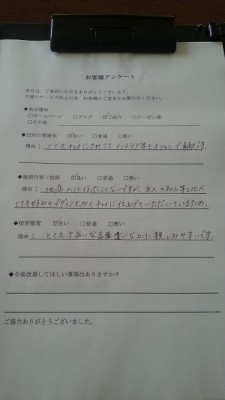 お客様アンケート
本日は ご来店いただきありがとうございます。
今後のサービス向上の為 お客様のご意見をお聞かせください。
◆来店動機
□ホームページ □ブログ ☑ご紹介 □クーポン等
□その他
◆店内の雰囲気 ☑良い □普通 □悪い
理由: とてもキレイにされてて、インテリア等もオシャレで素敵です。
◆施術内容・技術 ☑良い □普通 □悪い
理由: 他店には行ったことないですが、友人の
とても デザインも キレイに仕上げていただいているため。
◆接客態度 ☑良い □普通 □悪い
理由: とても丁寧な言葉遣いな上に親しみやすいです。
◆今後改善してほしい事等はありますか?
ご協力ありがとうございました。